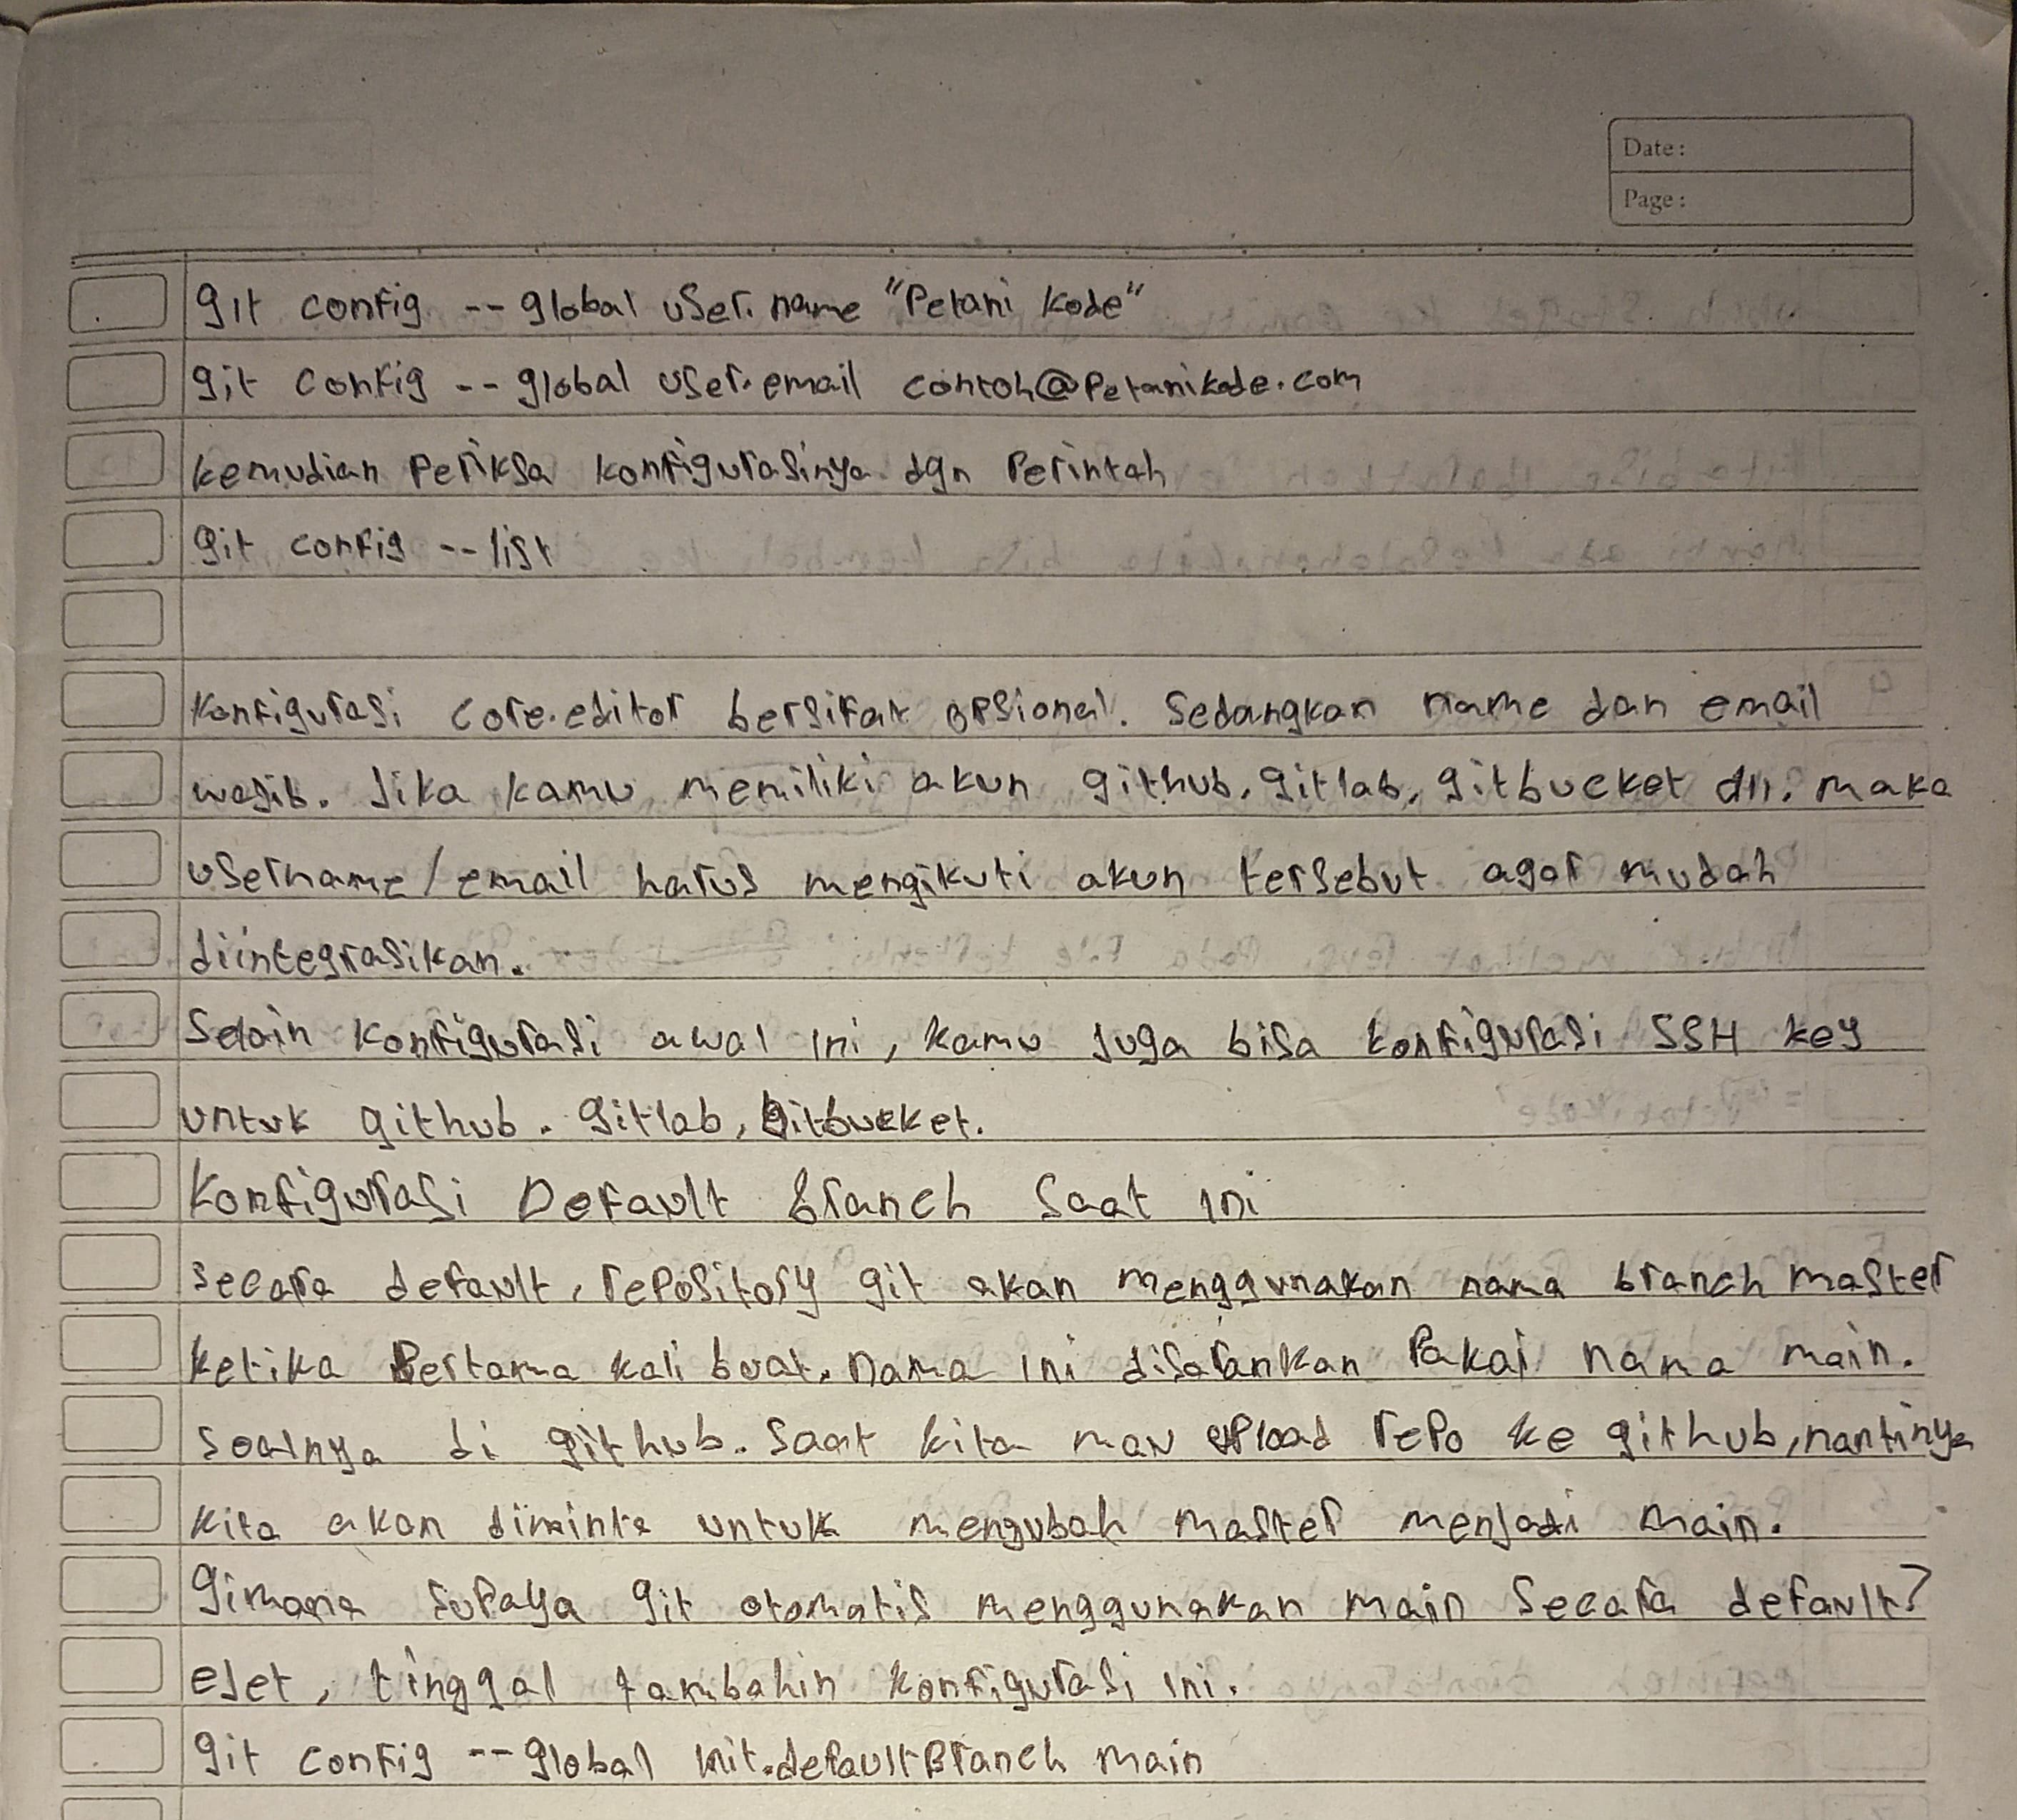 Date :
Page :
git config --global user.name "Petani Kode"
git config --global user.email contoh@petanikode.com
kemudian periksa konfigurasinya dgn perintah
git config --list
konfigurasi core.editor bersifat opsional. Sedangkan name dan email
wajib. Jika kamu memiliki akun github, gitlab, gitbucket dll. maka
username/email harus mengikuti akun tersebut agar mudah
diintegrasikan.
Selain konfigurasi awal ini, kamu juga bisa konfigurasi SSH key
untuk github. gitlab, bitbucket.
Konfigurasi Default branch saat ini
secara default, repository git akan menggunakan nama branch master
ketika pertama kali buat. nama ini disarankan pakai nama main.
soalnya di github. saat kita mau upload repo ke github, nantinya
kita akan diminta untuk mengubah master menjadi main.
gimana supaya git otomatis menggunakan main secara default?
ejet, tinggal tambahin konfigurasi ini.
git config --global init.defaultBranch main